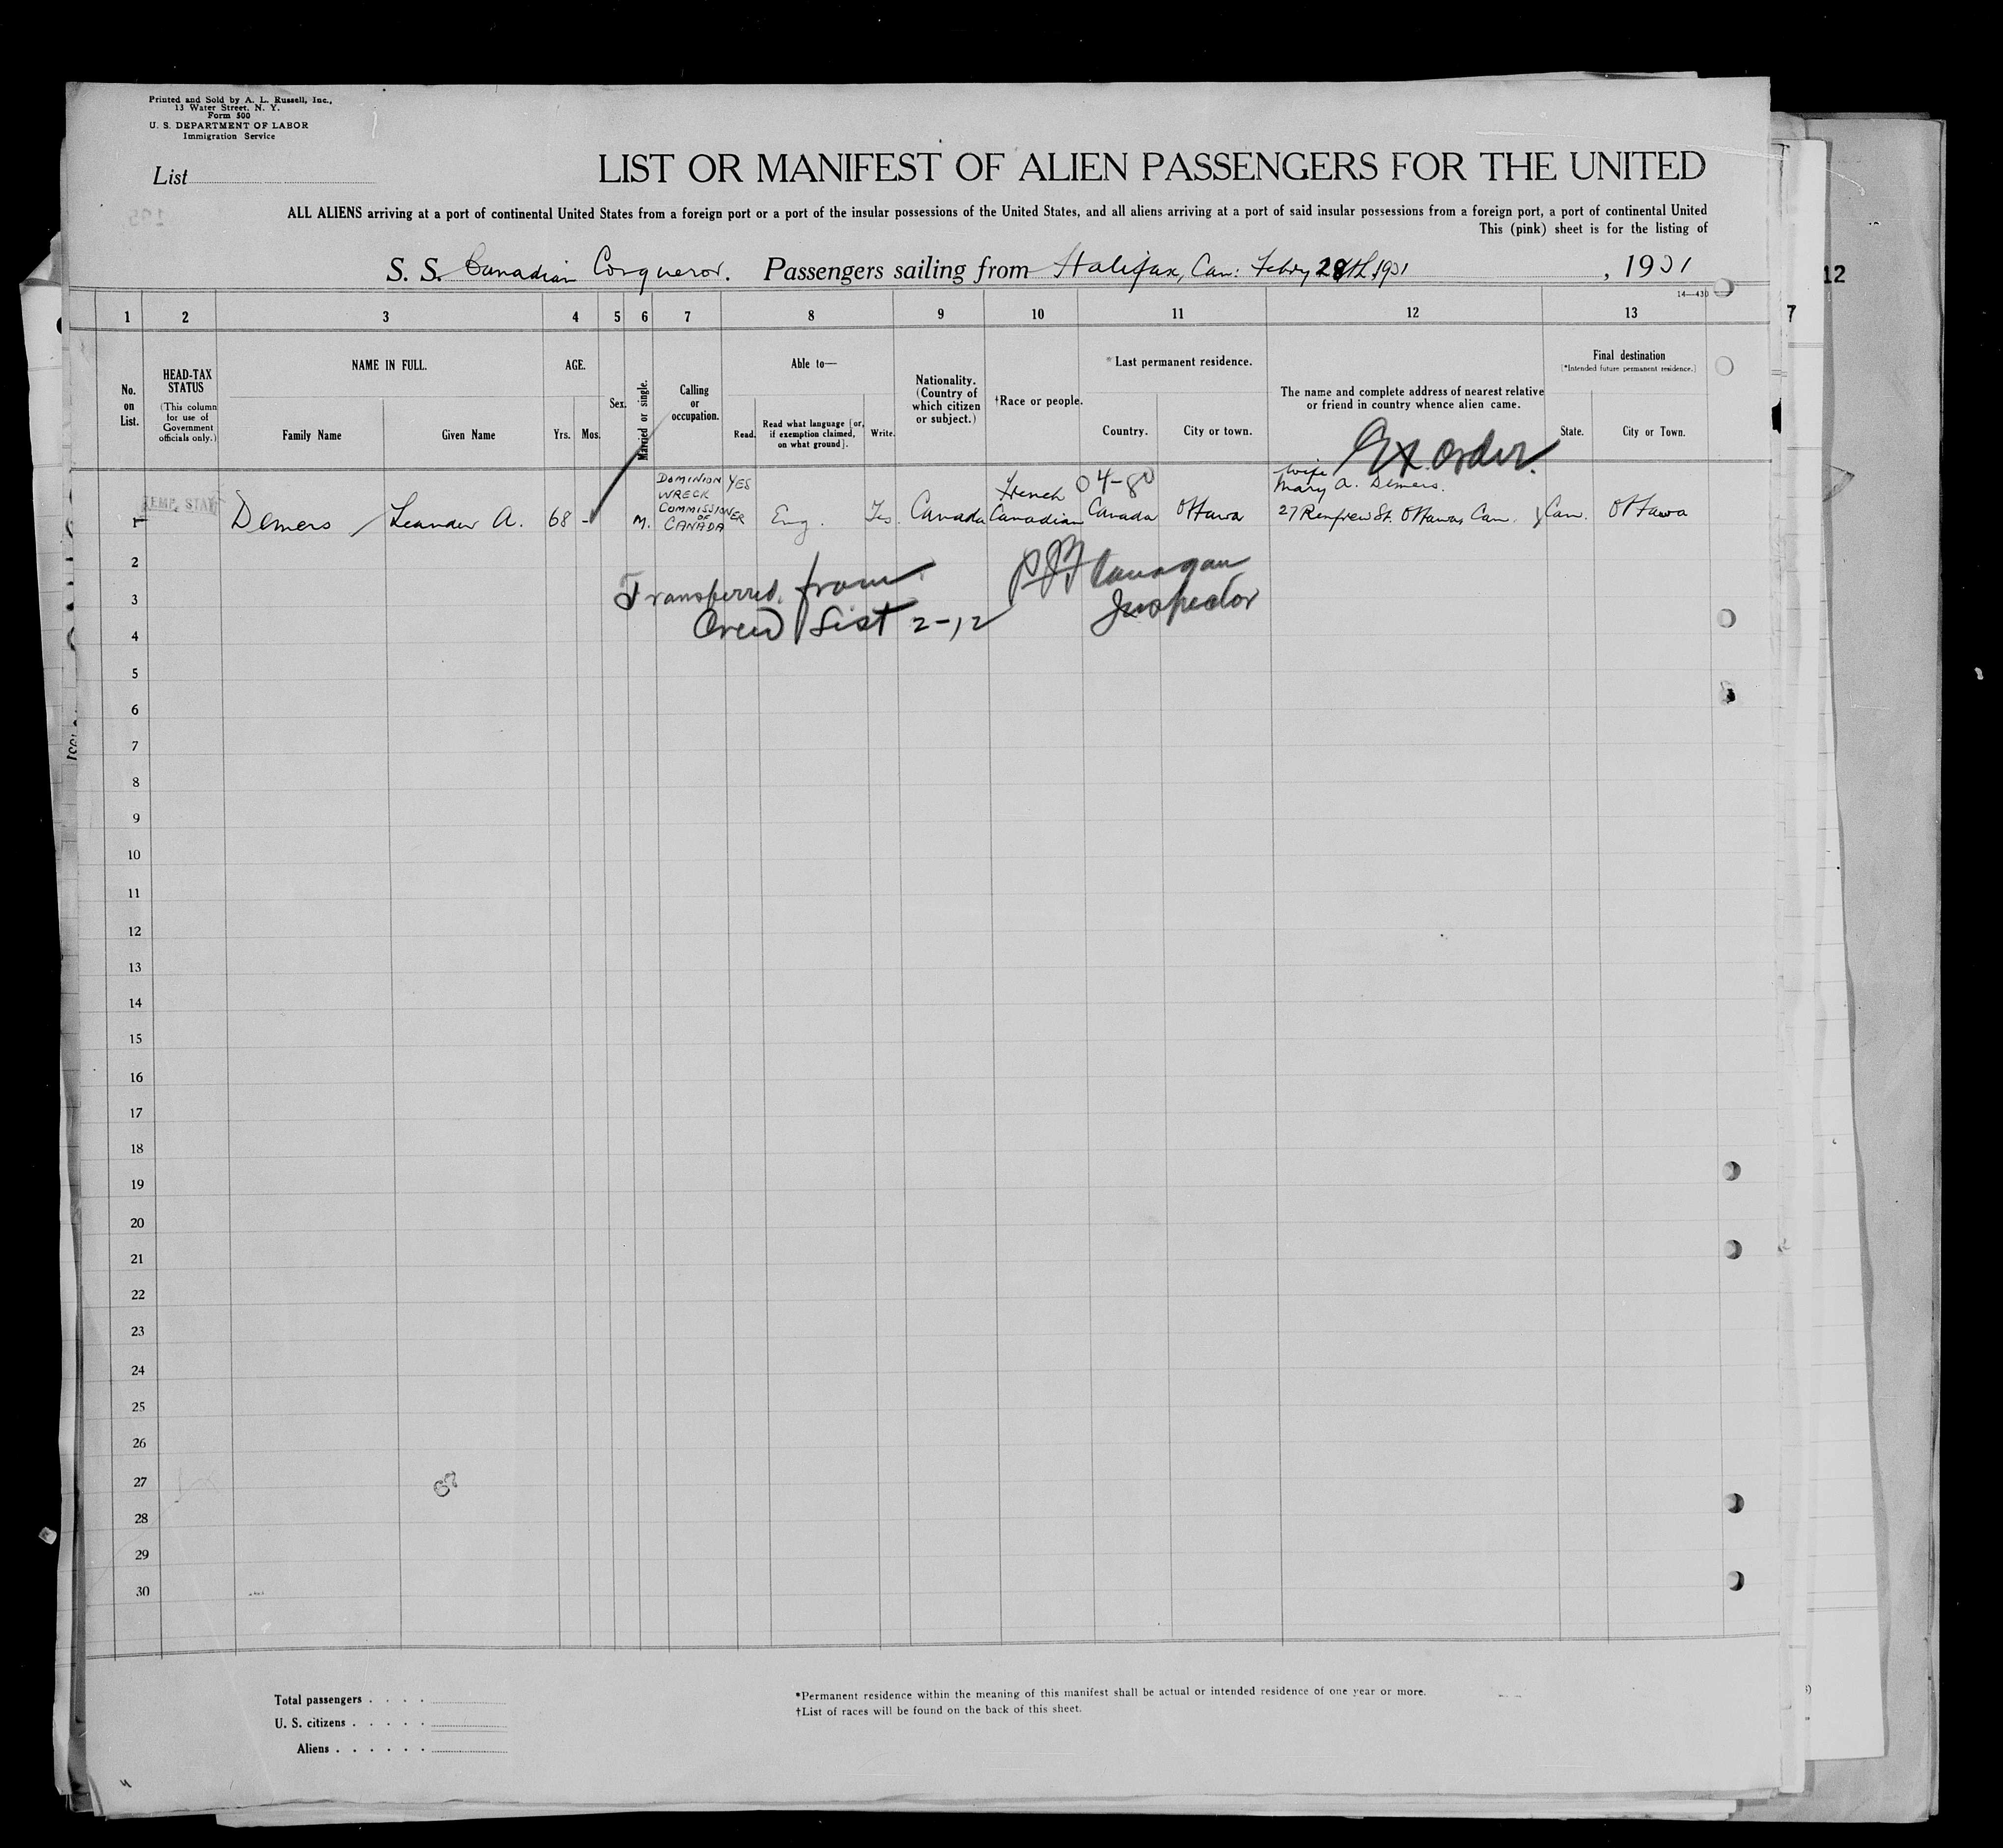 Printed and Sold by A. L. Russell, Inc.,
13 Water Street. N. Y.
Form 500
U. S. DEPARTMENT OF LABOR
Immigration Service
List
LIST OR MANIFEST OF ALIEN PASSENGERS FOR THE UNITED
ALL ALIENS arriving at a port of continental United States from a foreign port or a port of the insular possessions of the United States, and all aliens arriving at a port of said insular possessions from a foreign port, a port of continental United
This (pink) sheet is for the listing of
S. S. Canadian Conqueror. Passengers sailing from Halifax, Can: Febry 28th 1931, 1931
12
14—430
1 2 3 4 5 6 7 8 9 10 11 12 13
7
No. on List.
HEAD-TAX STATUS
(This column for use of Government officials only.)
NAME IN FULL.
Family Name
Given Name
AGE.
Yrs.
Mos.
Sex.
Married or single.
Calling or occupation.
Able to—
Read.
Read what language [or, if exemption claimed, on what ground].
Write.
Nationality. (Country of which citizen or subject.)
†Race or people.
*Last permanent residence.
Country.
City or town.
The name and complete address of nearest relative or friend in country whence alien came.
Final destination
[*Intended future permanent residence.]
State.
City or Town.
Ex. Order.
TEMP. STAY
1 Demers Leander A. 68 - M. DOMINION WRECK COMMISSIONER OF CANADA YES Eng. Yes. Canada French Canadian 04-80 Canada Ottawa wife Mary A. Demers. 27 Renfrew St. Ottawa, Can. Can. Ottawa
2
Transferred from
P J Flanagan
3
Crew List 2-12
Inspector
4
5
6
7
8
9
10
11
12
13
14
15
16
17
18
19
20
21
22
23
24
25
26
27
28
29
30
Total passengers
U. S. citizens
Aliens
*Permanent residence within the meaning of this manifest shall be actual or intended residence of one year or more.
†List of races will be found on the back of this sheet.